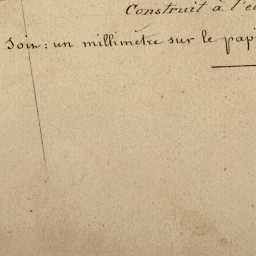 Construit à l'é
Soit: un millimètre sur le pap